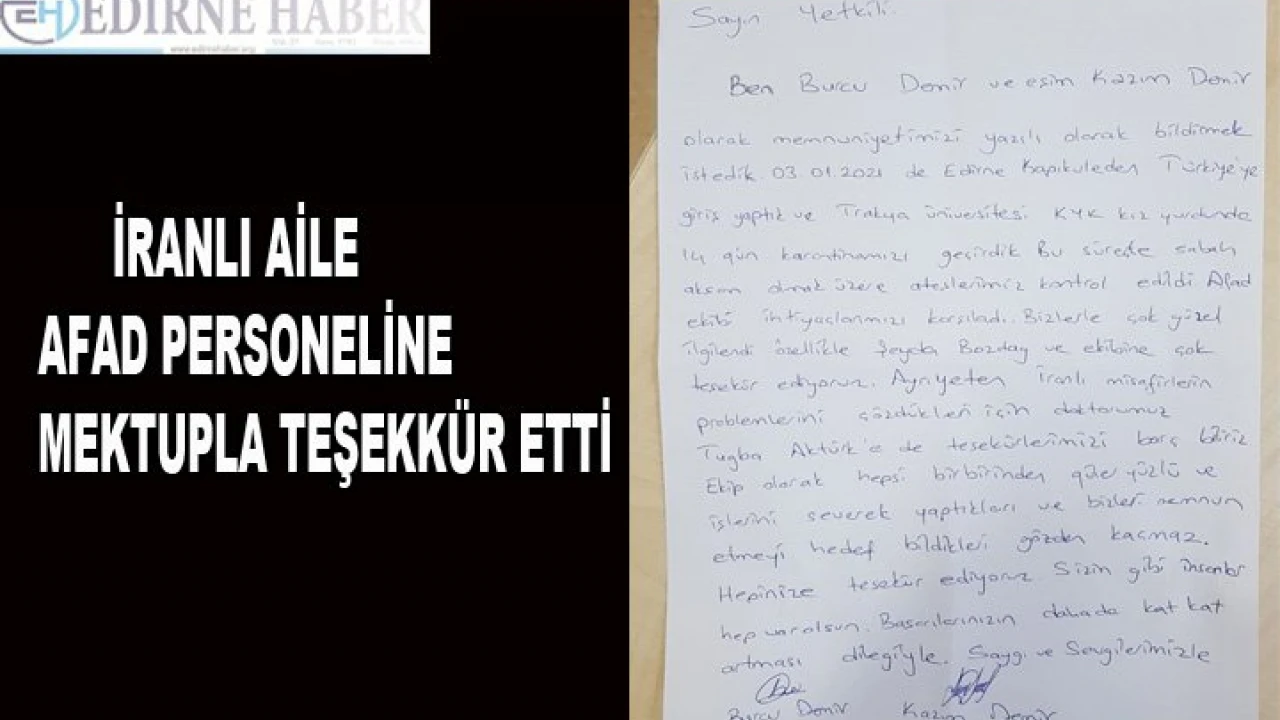 EH EDIRNE HABER
www.edirnehaber.org
İRANLI AİLE
AFAD PERSONELİNE
MEKTUPLA TEŞEKKÜR ETTİ
Sayın Yetkili
Ben Burcu Demir ve eşim Kazım Demir
olarak memnuniyetimizi yazılı olarak bildirmek
istedik. 03.01.2021 de Edirne Kapıkuleden Türkiye'ye
giriş yaptık ve Trakya üniversitesi KYK kız yurdunda
14 gün karantinamızı geçirdik Bu süreçte sabah
akşam olmak üzere ateşlerimiz kontrol edildi Afad
ekibi ihtiyaçlarımızı karşıladı. Bizlerle çok güzel
ilgilendi özellikle Şeyda Bozdag ve ekibine çok
teşekür ediyoruz. Ayrıyeten İranlı misafirlerin
problemlerini çözdükleri için doktorumuz
Tugba Aktürk'e de teşekürlerimizi borç biliriz
Ekip olarak hepsi birbirinden güler yüzlü ve
işlerini severek yaptıkları ve bizleri memnun
etmeyi hedef bildikleri gözden kaçmaz.
Hepinize teşekür ediyoruz Sizin gibi insanlar
hep varolsun. Başarılarınızın dahada kat kat
artması dilegiyle. Saygı ve Sevgilerimizle
Burcu Demir Kazım Demir